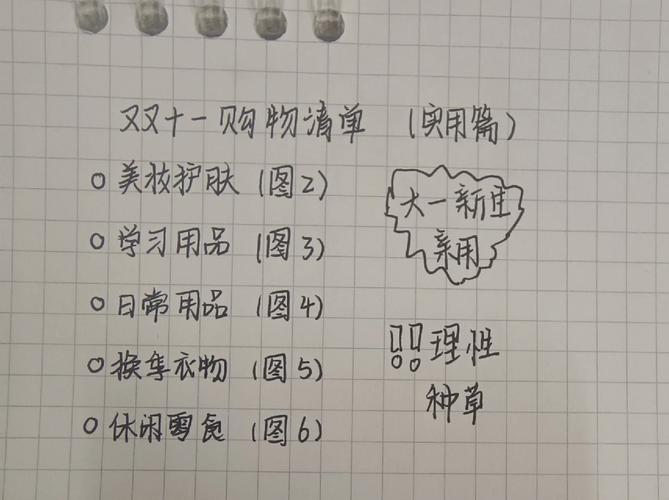 双十一购物清单 (实用篇)
美妆护肤 (图2)
学习用品 (图3)
日常用品 (图4)
换季衣物 (图5)
休闲零食 (图6)
大一新生
亲用
!!理性
种草